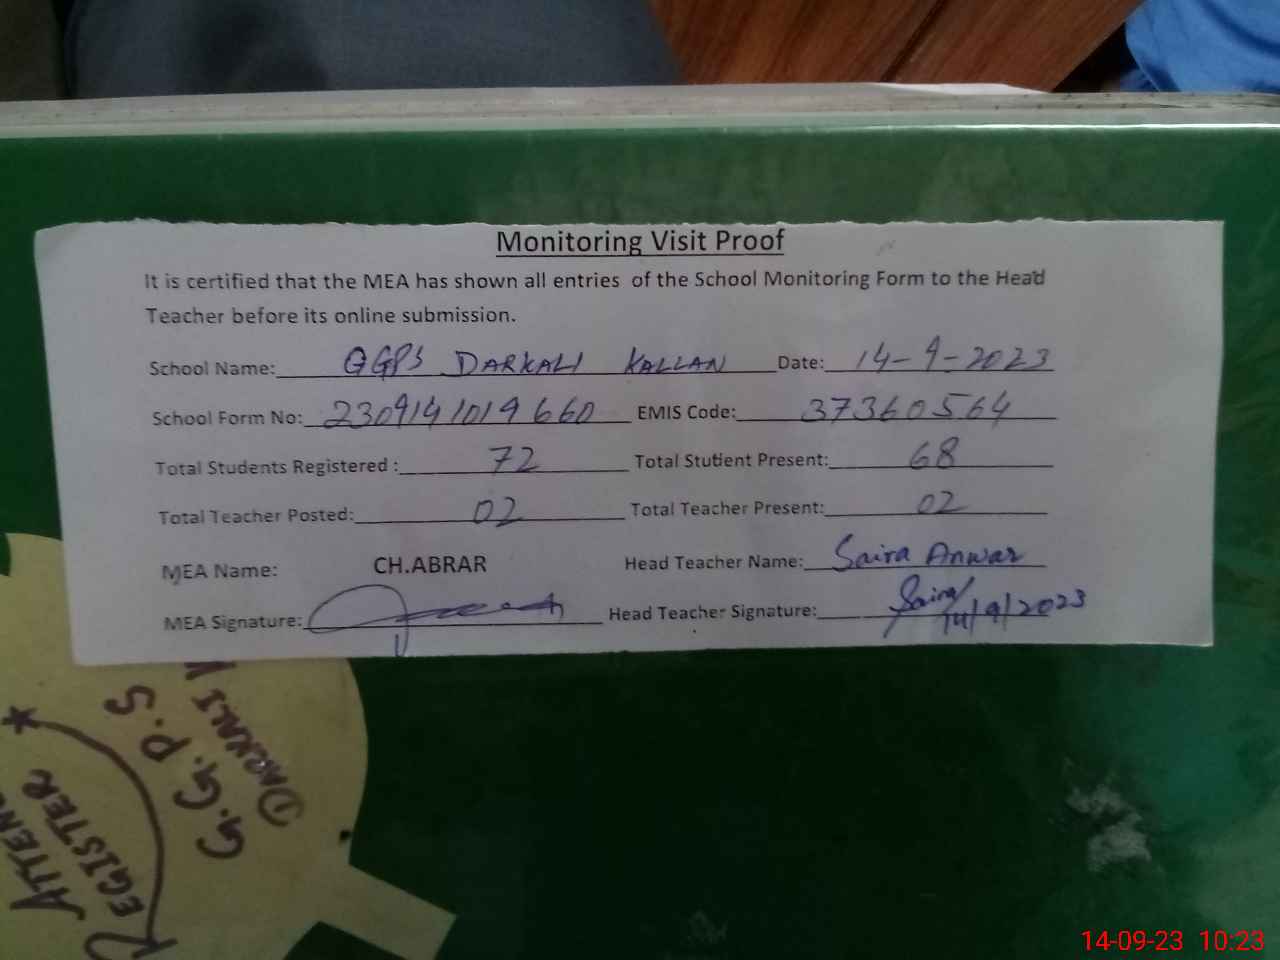 Monitoring Visit Proof
It is certified that the MEA has shown all entries of the School Monitoring Form to the Head
Teacher before its online submission.
School Name: GGPS DARKALI KALLAN Date: 14-9-2023
School Form No: 2309141019660 EMIS Code: 37360564
Total Students Registered : 72 Total Student Present: 68
Total Teacher Posted: 02 Total Teacher Present: 02
MEA Name: CH.ABRAR Head Teacher Name: Saira Anwar
MEA Signature: Head Teacher Signature: Saira
14/9/2023
G.G.P.S
DARKALI
REGISTER
14-09-23 10:23